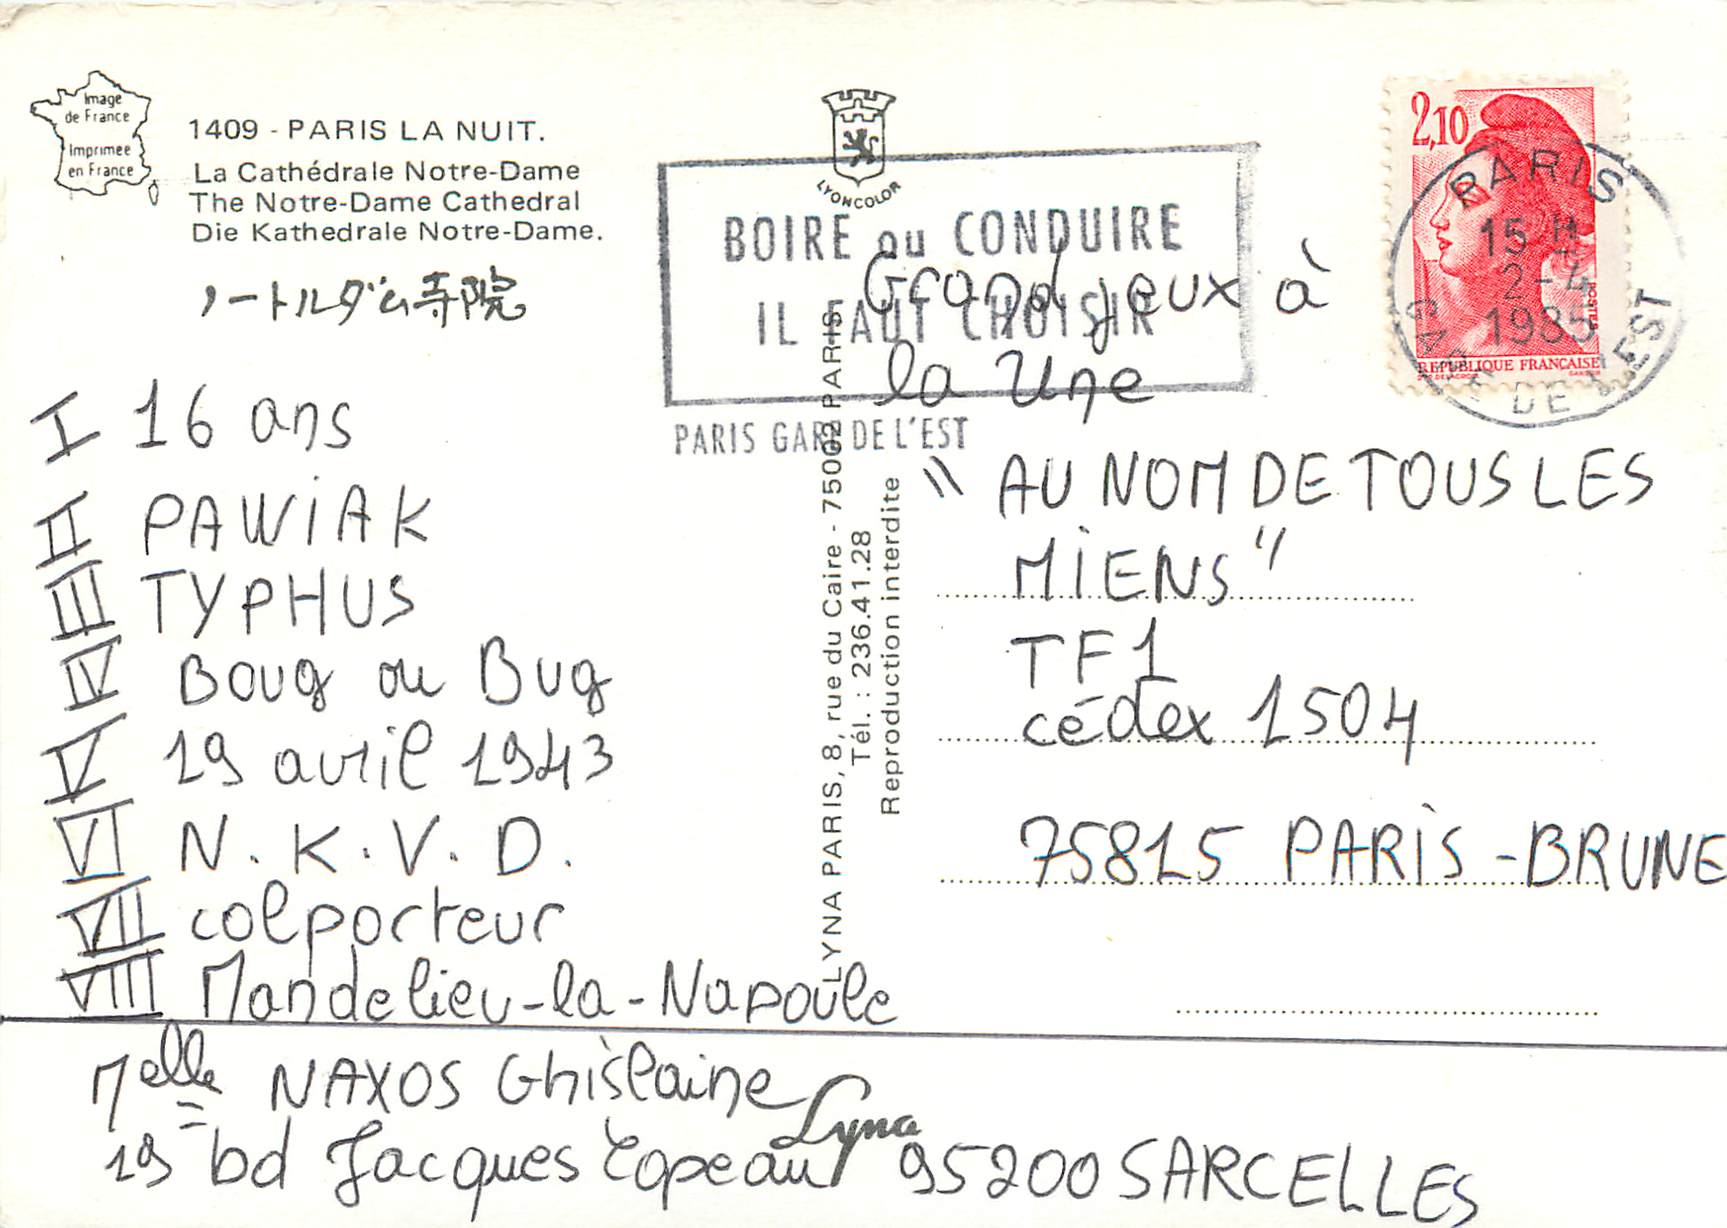 Image
de France
Imprimée
en France
1409 - PARIS LA NUIT.
La Cathédrale Notre-Dame
The Notre-Dame Cathedral
Die Kathedrale Notre-Dame.
ノートルダム寺院
I 16 ans
II PAWIAK
III TYPHUS
IV Boug ou Bug
V 19 avril 1943
VI N.K.V.D.
VII colporteur
VIII Mandelieu-la-Napoule
LYONCOLOR
BOIRE ou CONDUIRE
IL FAUT CHOISIR
PARIS GARE DE L'EST
LYNA PARIS, 8, rue du Caire - 75002 PARIS
Tél. : 236.41.28
Reproduction interdite
2,10
POSTES
REPUBLIQUE FRANÇAISE
GANDON
PARIS
15 H
2-4
1985
GARE DE L'EST
Grand jeux à
la Une
"AU NOM DE TOUS LES
MIENS"
TF1
cédex 1504
75815 PARIS-BRUNE
Melle NAXOS Ghislaine
Lyna
19 bd Jacques Copeau 95200 SARCELLES